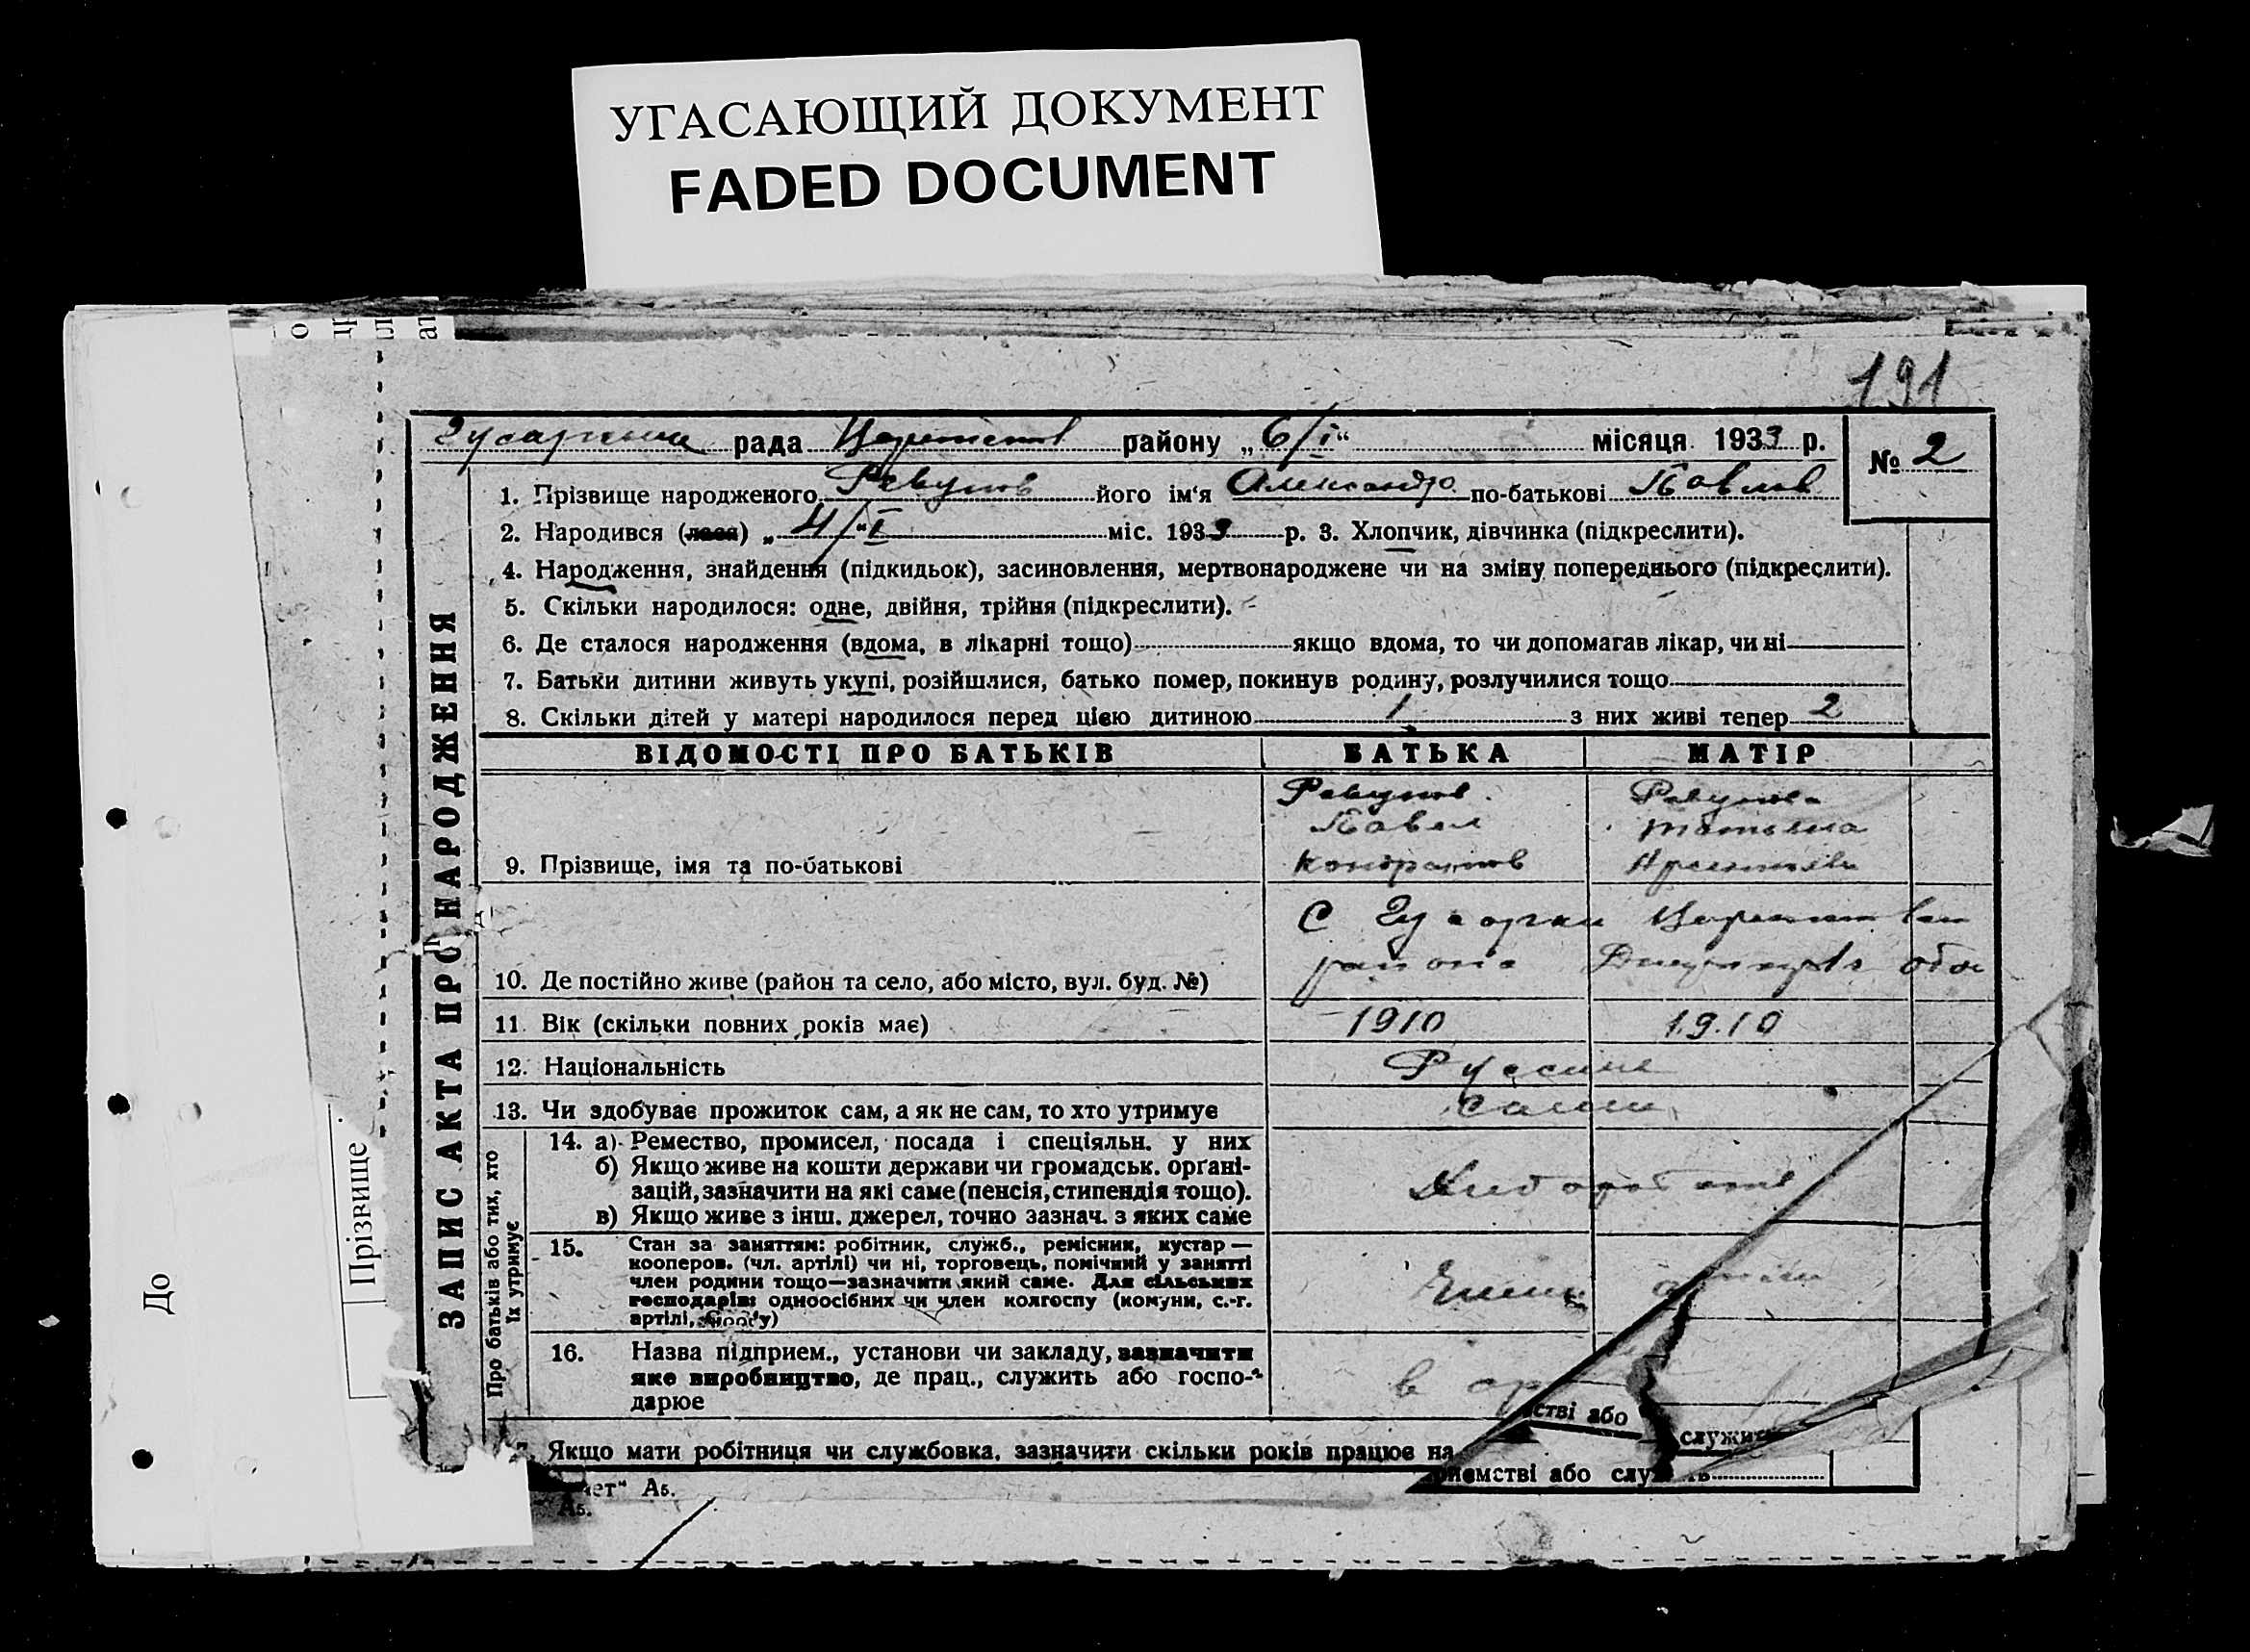 УГАСАЮЩИЙ ДОКУМЕНТ
FADED DOCUMENT
191
рада району „6/I“ місяця 1933 р.
№ 2
1. Прізвище народженого Ревунов його ім‘я Александр по-батькові Павлов
2. Народився (лася) „4/“I міс. 1933 р. 3. Хлопчик, дівчинка (підкреслити).
4. Народження, знайдення (підкидьок), засиновлення, мертвонароджене чи на зміну попереднього (підкреслити).
5. Скільки народилося: одне, двійня, трійня (підкреслити).
6. Де сталося народження (вдома, в лікарні тощо) якщо вдома, то чи допомагав лікар, чи ні
7. Батьки дитини живуть укупі, розійшлися, батько помер, покинув родину, розлучилися тощо
8. Скільки дітей у матері народилося перед цією дитиною 1 з них живі тепер 2
ЗАПИС АКТА ПРО НАРОДЖЕННЯ
ВІДОМОСТІ ПРО БАТЬКІВ БАТЬКА МАТІР
Ревунов Ревунова
Павел Татьяна
9. Прізвище, імя та по-батькові Кондратов
С
района
10. Де постійно живе (район та село, або місто, вул. буд. №)
11. Вік (скільки повних років має) 1910 1910
12. Національність Русские
13. Чи здобуває прожиток сам, а як не сам, то хто утримує сами
Про батьків або тих, хто їх утримує
14. а) Ремество, промисел, посада і спеціяльн. у них
б) Якщо живе на кошти держави чи громадськ. орґані-
зацій, зазначити на які саме (пенсія, стипендія тощо).
в) Якщо живе з інш. джерел, точно зазнач. з яких саме
Хлебороб
15. Стан за заняттям: робітник, служб., ремісник, кустар —
кооперов. (чл. артілі) чи ні, торговець, помічний у занятті
член родини тощо—зазначити який саме. Для сільських
господарів: одноосібних чи член колгоспу (комуни, с.-г.
артілі,
16. Назва підприєм., установи чи закладу, зазначити
яке виробництво, де прац., служить або госпо-
дарює
в
стві або
служить
Якщо мати робітниця чи службовка, зазначити скільки років працює на
приємстві або служ
ет“ А5.
А5.
Прізвище
До